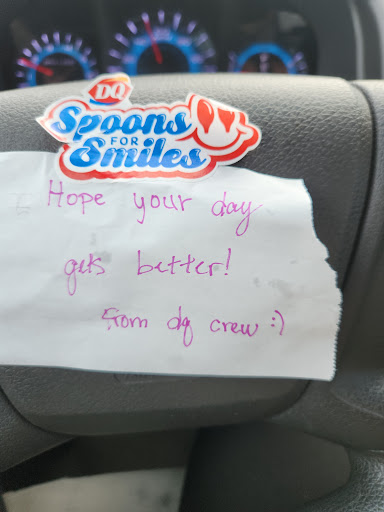 DQ
Spoons
FOR
Smiles
Hope your day
gets better!
from dq crew :)